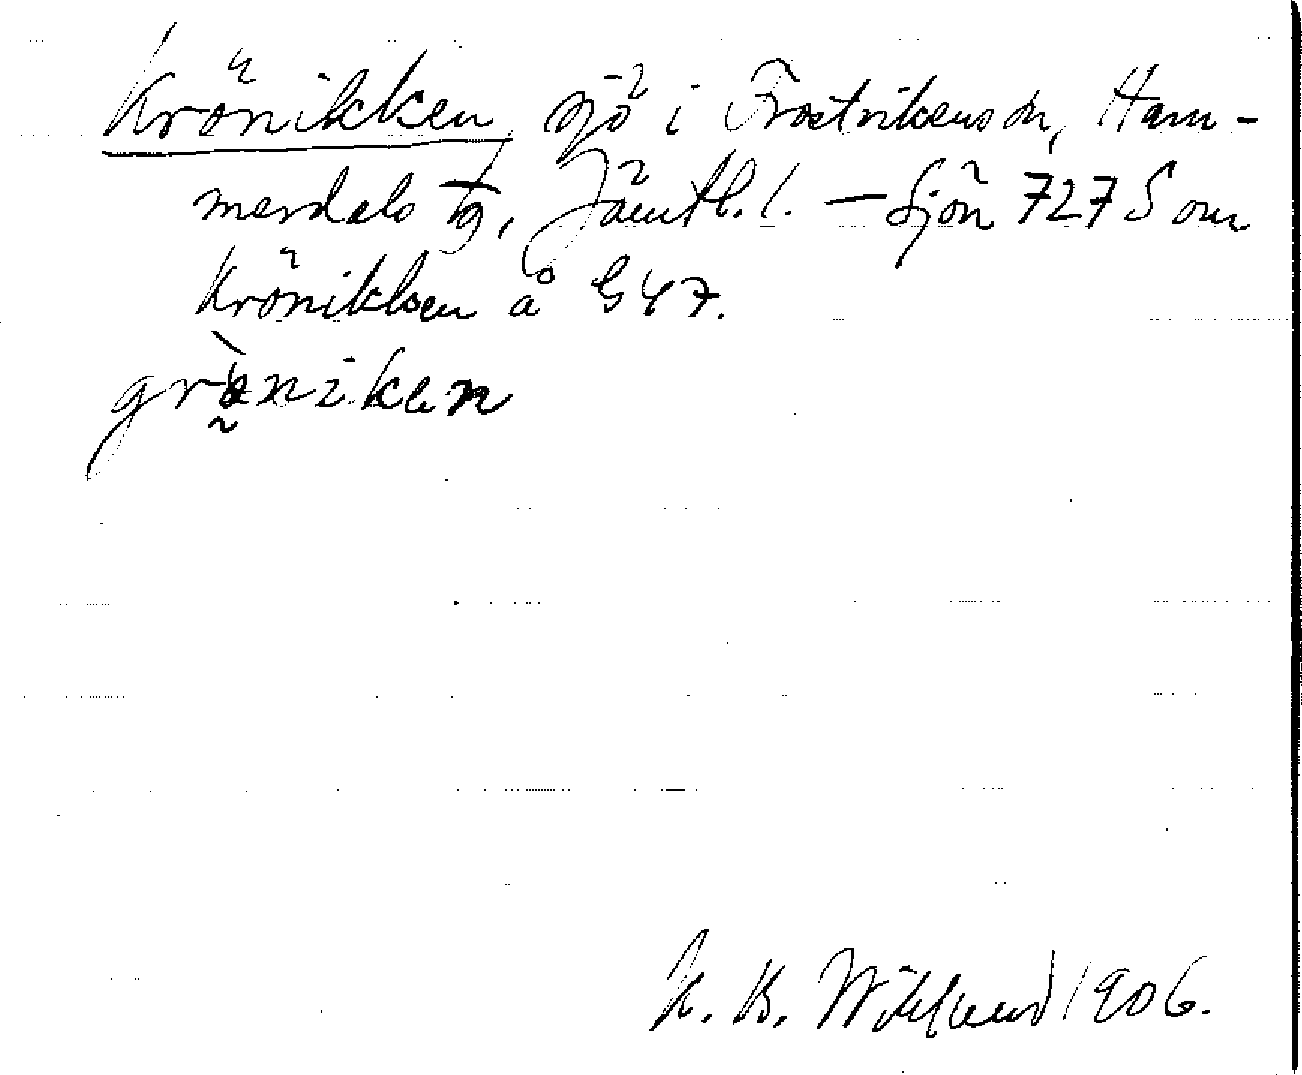 Krönikken, sjö i Frostvikens sn, Ham-
merdals tg, Jämtl. l. – Sjön 727 S om
Krönikken å G 47.
grəniken
K. B. Wiklund 1906.